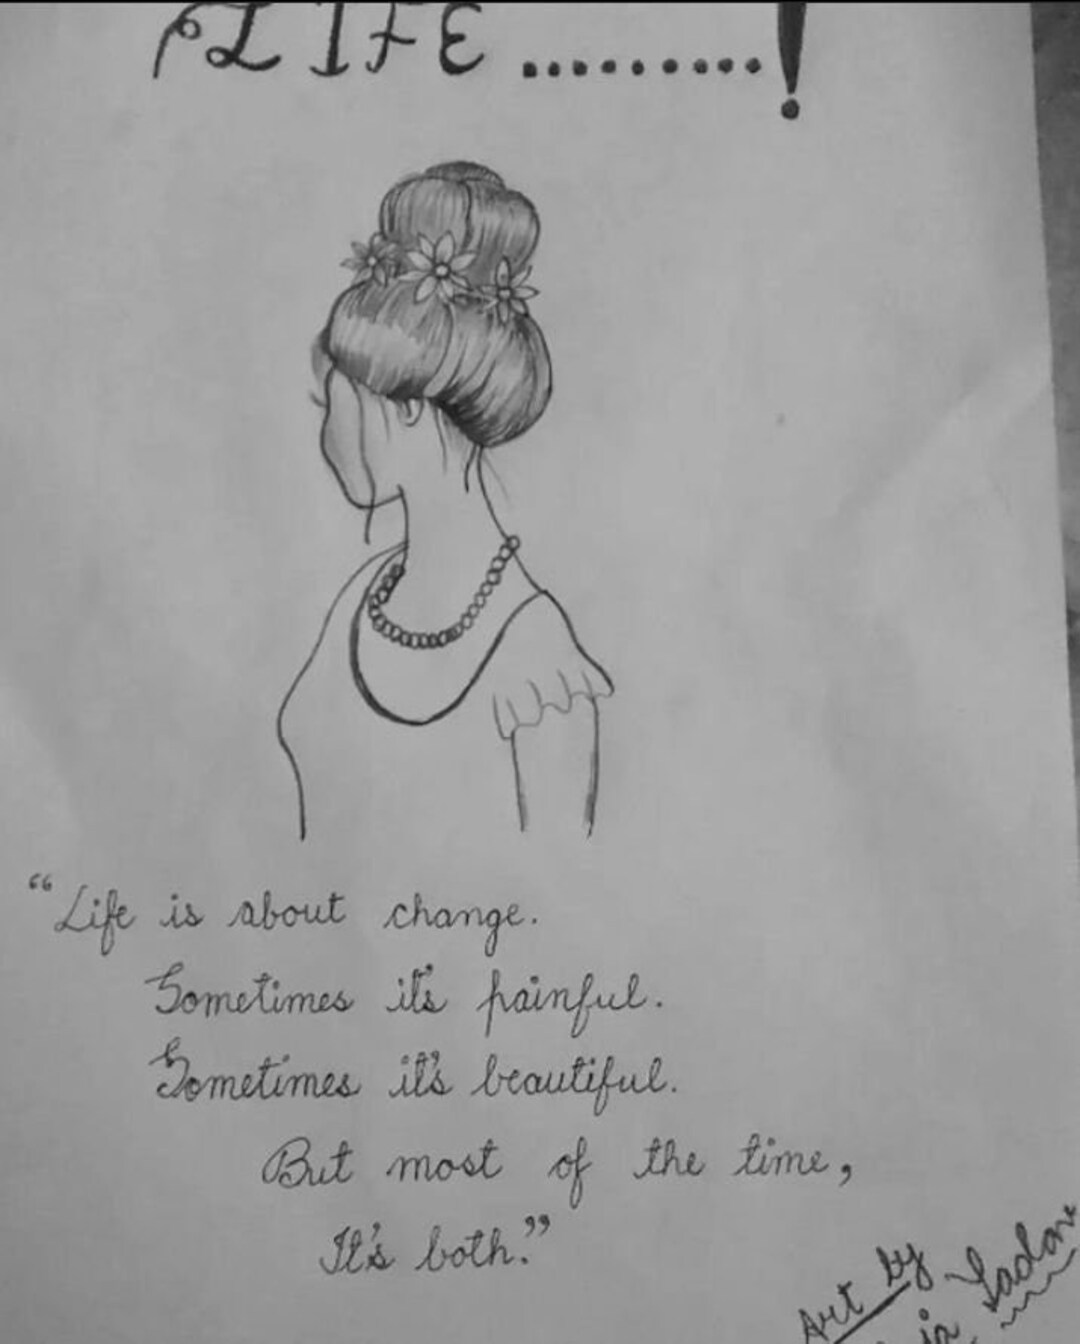 LIFE .........!
“Life is about change.
Sometimes it's painful.
Sometimes it's beautiful.
But most of the time,
It's both.”
Art by